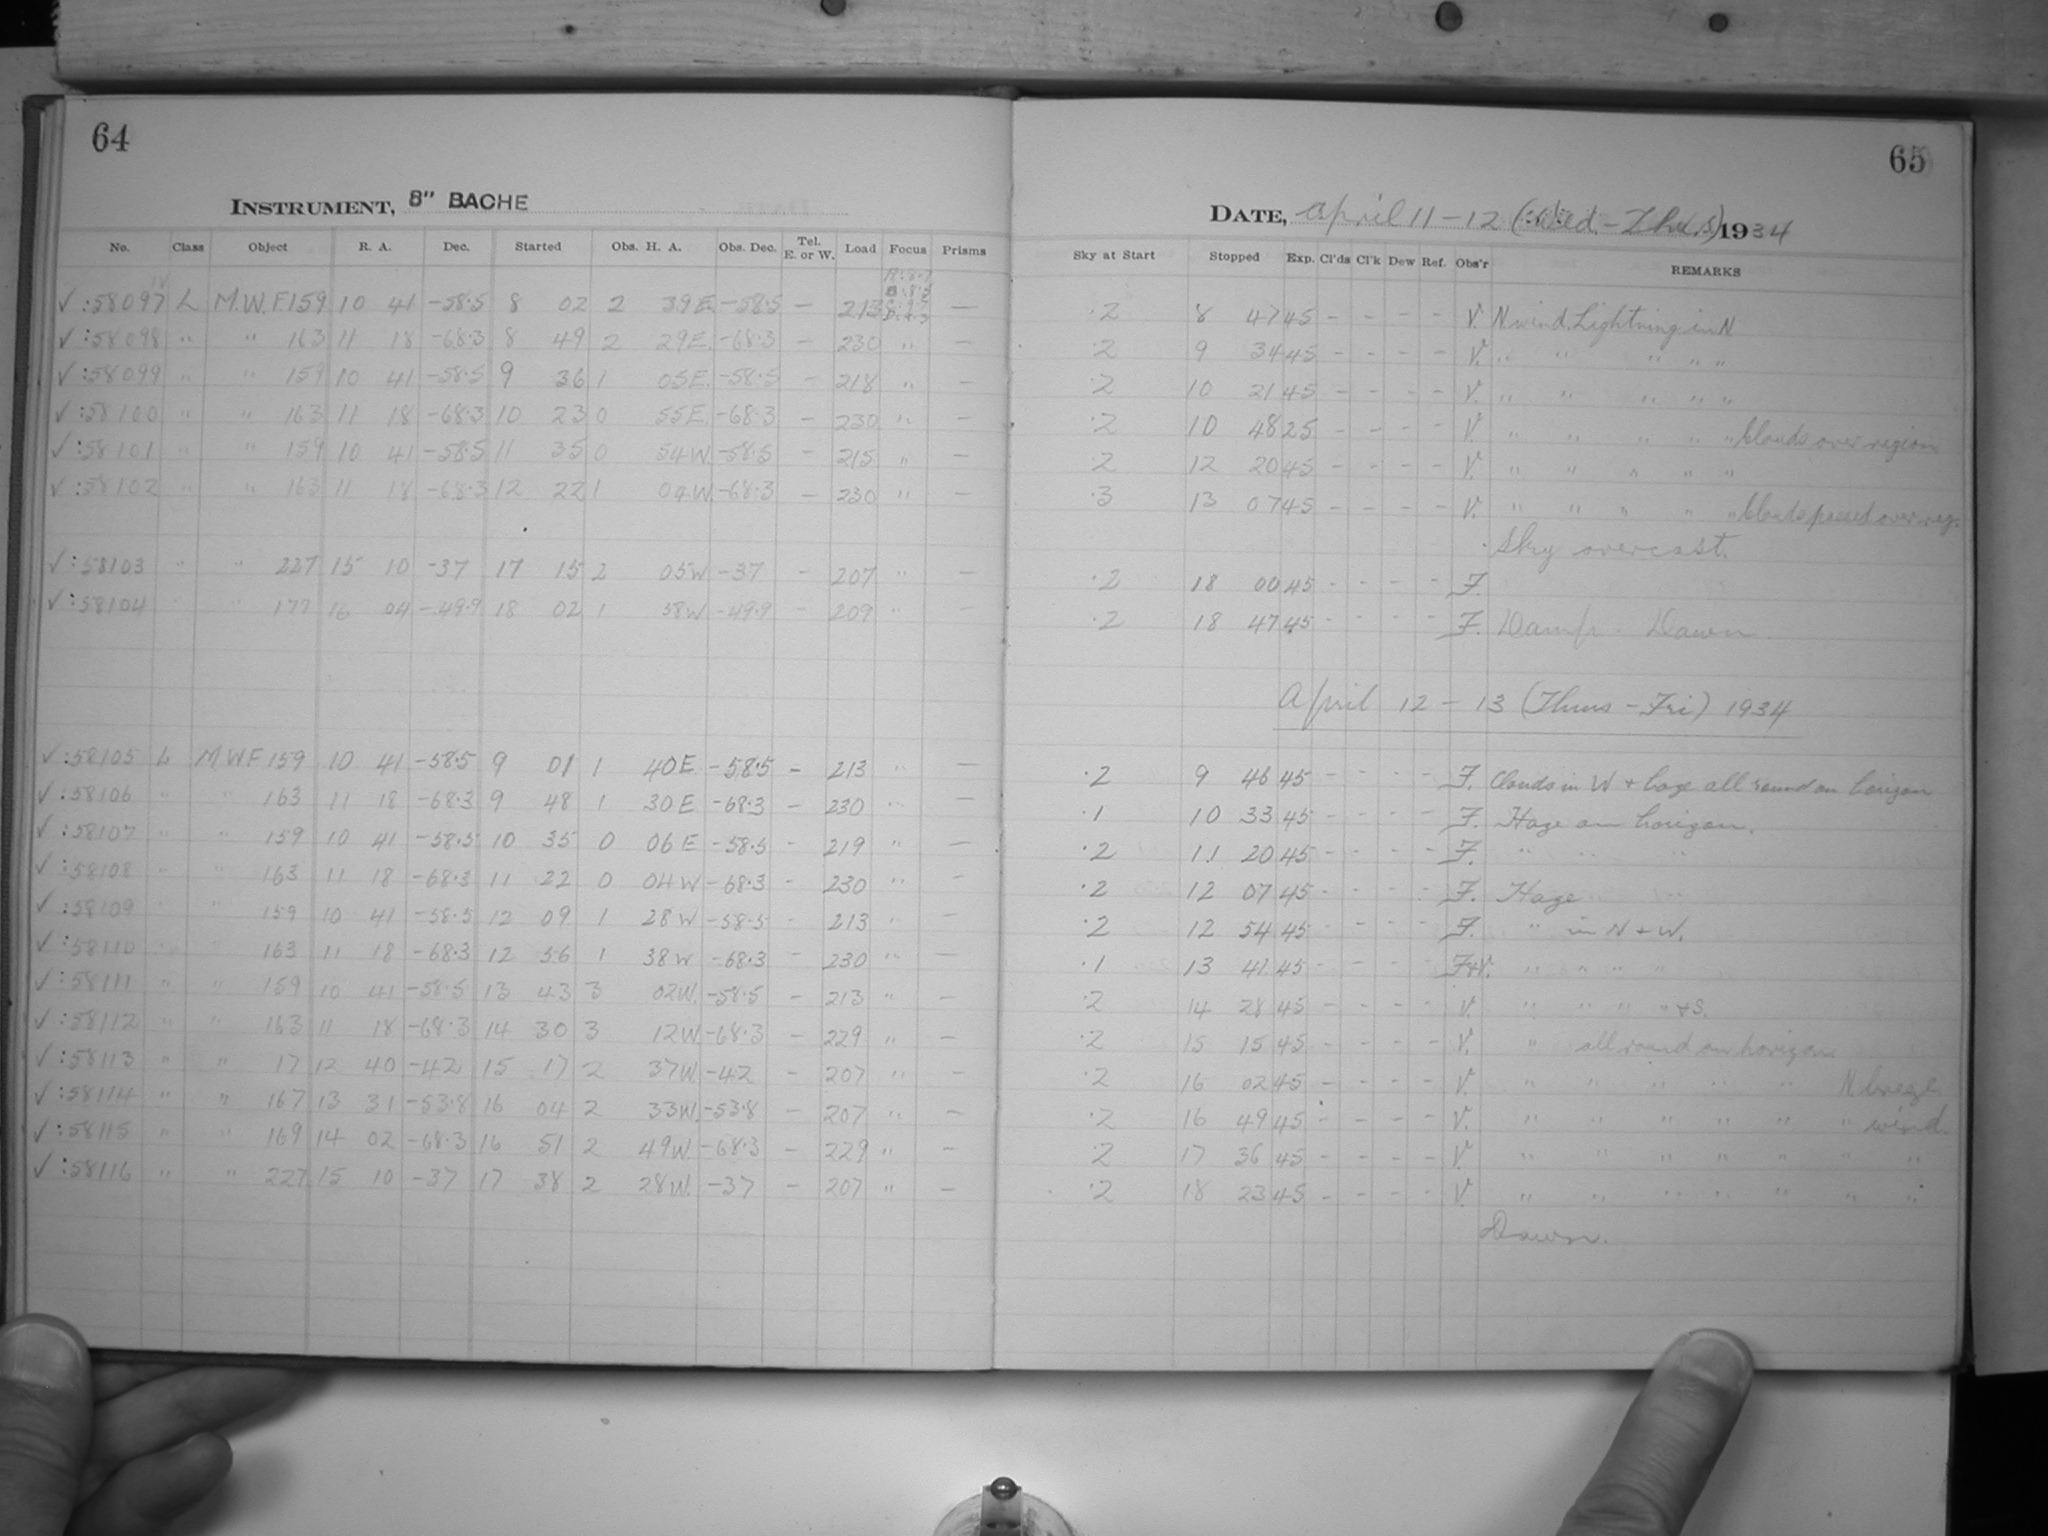 64
INSTRUMENT, 8" BACHE
No. Class Object R. A. Dec. Started Obs. H. A. Obs. Dec. Tel. E. or W. Load Focus Prisms
✓:58097 L M.W.F.159 10 41 -58.5 8 02 2 39E. -58.5 - 213 -
✓:58098 " " 163 11 18 -68.3 8 49 2 29E. -68.3 - 230 " -
✓:58099 " " 159 10 41 -58.5 9 36 1 05E. -58.5 - 218 " -
✓:58100 " " 163 11 18 -68.3 10 23 0 55E. -68.3 - 230 " -
✓:58101 " " 159 10 41 -58.5 11 35 0 54W. -58.5 - 215 " -
✓:58102 " " 163 11 18 -68.3 12 22 1 04W. -68.3 - 230 " -
✓:58103 " " 227 15 10 -37 17 15 2 05W -37 - 207 " -
✓:58104 " " 177 16 04 -49.9 18 02 1 58W -49.9 - 209 " -
✓:58105 L M W F 159 10 41 -58.5 9 01 1 40E -58.5 - 213 " -
✓:58106 " " 163 11 18 -68.3 9 48 1 30E -68.3 - 230 " -
✓:58107 " " 159 10 41 -58.5 10 35 0 06E -58.5 - 219 " -
✓:58108 " " 163 11 18 -68.3 11 22 0 04W -68.3 - 230 " -
✓:58109 " " 159 10 41 -58.5 12 09 1 28W -58.5 - 213 " -
✓:58110 " " 163 11 18 -68.3 12 56 1 38W -68.3 - 230 " -
✓:58111 " " 159 10 41 -58.5 13 43 3 02W. -58.5 - 213 " -
✓:58112 " " 163 11 18 -68.3 14 30 3 12W -68.3 - 229 " -
✓:58113 " " 17 12 40 -42 15 17 2 37W. -42 - 207 " -
✓:58114 " " 167 13 31 -53.8 16 04 2 33W. -53.8 - 207 " -
✓:58115 " " 169 14 02 -68.3 16 51 2 49W. -68.3 - 229 " -
✓:58116 " " 227 15 10 -37 17 38 2 28W. -37 - 207 " -
65
DATE, April 11-12 (Wed.-Thurs) 1934
Sky at Start Stopped Exp. Cl'ds Cl'k Dew Ref. Obs'r REMARKS
.2 8 47 45 - - - - V. N wind. Lightning in N
.2 9 34 45 - - - - V. " " " " "
.2 10 21 45 - - - - V. " " " " "
.2 10 48 25 - - - - V. " " " " " Clouds over region
.2 12 20 45 - - - - V. " " " " "
.3 13 07 45 - - - - V. " " " " " Clouds passed over reg.
Sky overcast.
.2 18 00 45 - - - - F.
.2 18 47 45 - - - - F. Damp. Dawn.
April 12-13 (Thurs-Fri) 1934
.2 9 46 45 - - - - F. Clouds in W + haze all round on horizon
.1 10 33 45 - - - - F. Haze on horizon.
.2 11 20 45 - - - - F. " " "
.2 12 07 45 - - - - F. Haze " "
.2 12 54 45 - - - - F. " in N + W.
.1 13 41 45 - - - - F+V. " " " "
.2 14 28 45 - - - - V. " " " " +S.
.2 15 15 45 - - - - V. " all round on horizon
.2 16 02 45 - - - - V. " " " " " N breeze
.2 16 49 45 - - - - V. " " " " " " wind.
.2 17 36 45 - - - - V. " " " " " " "
.2 18 23 45 - - - - V. " " " " " " "
Dawn.